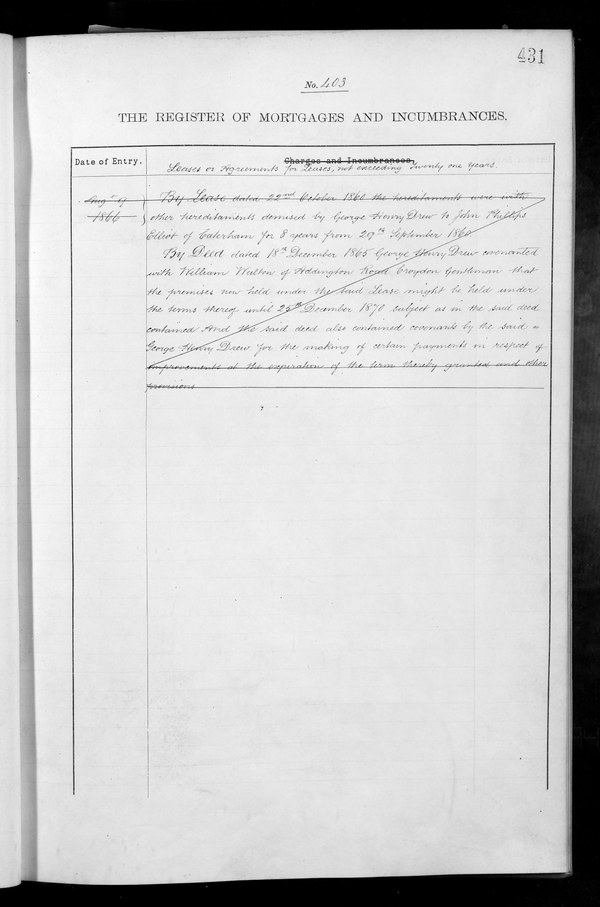 431
No. 403
THE REGISTER OF MORTGAGES AND INCUMBRANCES.
Date of Entry.
Charges and Incumbrances,
Leases or Agreements for Leases, not exceeding Twenty one years.
Augt 1866
By Lease dated 22nd October 1860 the hereditaments were with
other hereditaments demised by George Henry Drew to John Phillips
Elliot of Caterham for 8 years from 29th September 1860
By Deed dated 18th December 1865 George Henry Drew covenanted
with William Walton of Addington Road Croydon Gentleman that
the premises now held under the said Lease might be held under
the terms thereof until 25th December 1870 subject as in the said deed
contained And the said deed also contained covenants by the said
George Henry Drew for the making of certain payments in respect of
improvements at the expiration of the term thereby granted and other
provisions